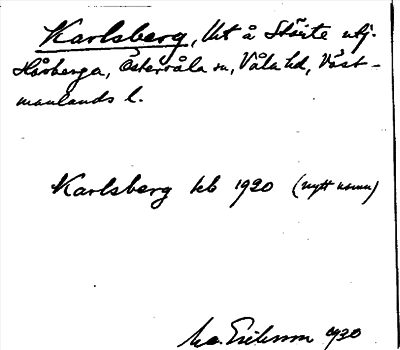 Karlsberg, lht å Störte utj.
Hårberga, Östervåla sn, Våla hd, Väst-
manlands l.
Karlsberg kb 1920 (nytt namn)
Eriksson 1930